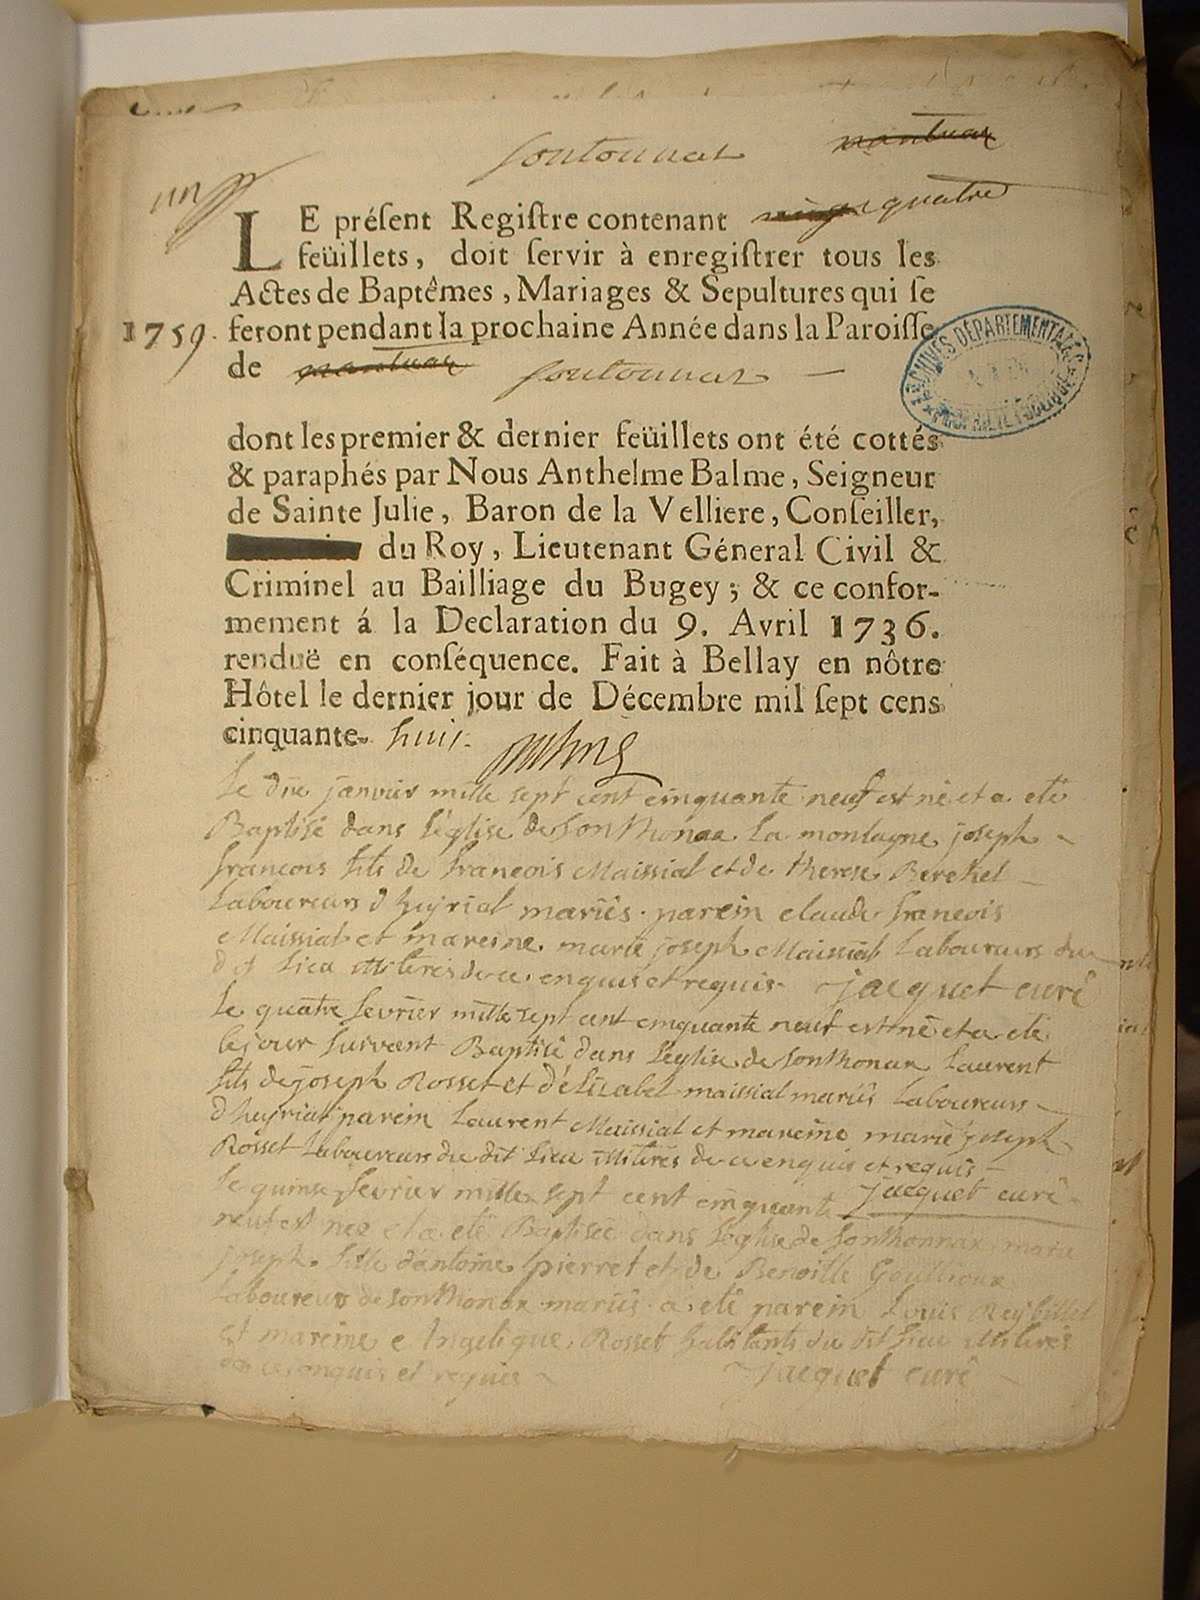 Sontonnas nantuax
LE préſent Regiſtre contenant quatre
feüillets, doit ſervir à enregiſtrer tous les
Actes de Baptêmes, Mariages & Sepultures qui ſe
1759. feront pendant la prochaine Année dans la Paroiſſe
de nantuax Sontonnas
ARCHIVES DÉPARTEMENTALES
dont les premier & dernier feüillets ont été cottés
& paraphés par Nous Anthelme Balme, Seigneur
de Sainte Julie, Baron de la Velliere, Conſeiller,
du Roy, Lieutenant Géneral Civil &
Criminel au Bailliage du Bugey; & ce confor-
mement á la Declaration du 9. Avril 1736.
renduë en conſéquence. Fait à Bellay en nôtre
Hôtel le dernier jour de Décembre mil ſept cens
cinquante- huit.
Le dix janvier mille sept cent cinquante neuf est né et a eté
Baptisé dans l'église de Sonthonax la montagne joseph
francois fils de francois Maissiat et de therese Berchet
Laboureurs d'heyriat mariés. parein claude francois
Maissiat et mareine marie joseph Maissiat Laboureurs du
dit lieu illiterés de ce enquis et requis. jacquet curé
Le quatre fevrier mille sept cent cinquante neuf est né et a eté
le jour suivent Baptisé dans l'eglise de Sonthonax Laurent
fils de joseph Rosset et d'élizabet maissiat mariés Laboureurs
d'heyriat parein Laurent Maissiat et mareine marie joseph
Rosset Laboureurs du dit lieu illiterés de ce enquis et requis
jacquet curé
Le quinse fevrier mille sept cent cinquante
neuf est née et a eté Baptisée dans l'eglise de Sonthonnax marie
joseph fille d'antoine pierret et de Benoitte Goullioux
Laboureurs de Sonthonax mariés a eté parein Louis Reybillet
et mareine Angelique Rosset habitants du dit lieu illiteres
de ce enquis et requis jacquet curé